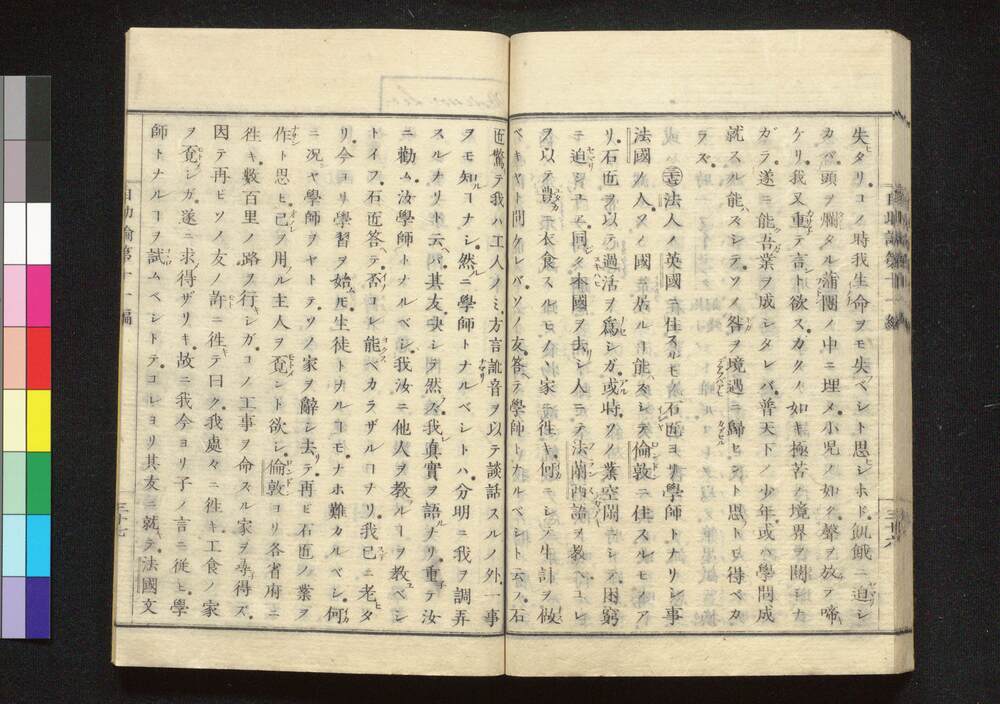 失タリ。コノ時我生命ヲモ失ベシト思ヒシホド、飢餓ニ迫シ
カバ、頭ヲ爛タル蒲團ノ中ニ埋メ、小兒ノ如ク聲ヲ放テ啼
ケリ。我又重テ言ト欲ス。カクノ如キ極苦ノ境界ヲ閲モナ
ガラ、遂ニ能吾業ヲ成シタレバ、普天下ノ少年、或ハ學問成
就スル能ハズシテ、ソノ咎ヲ境遇ニ歸セント思フトモ得ベカ
ラズ。
法人ノ英國ニ在住スルモノ石匠ヨリ學師トナリシ事
法國ノ人、ソノ國ニ居ルコト能ハズシテ、倫敦ニ住スルモノア
リ。石匠ヲ以テ過活ヲ爲シガ、或時ソノ業空閑ニシテ、困窮
ニ迫シユエ、同ク本國ヲ去シ人ニテ、法蘭西語ヲ教ヘ、コレ
ヲ以テ豊ニ衣食スルモノノ家ニ徃キ、何ニシテ生計ヲ做
ベキヤト問ケレバ、ソノ友答ヘテ學師トナルベシト云フ。石
匠驚テ我ハ工人ノミ、方言訛音ヲ以テ談話スルノ外、一事
ヲモ知ルコナシ。然ルニ學師トナルベシトハ、分明ニ我ヲ調弄
スルナリト云ヘバ、其友決シテ然ラズ、我眞實ヲ語ルナリ。重テ汝
ニ勸ム、汝學師トナルベシ。我汝ニ他人ヲ教フルコヲ教ユベシ
トイフ。石匠答ヘテ否、コレ能ベカラザルコナリ。我已ニ老タ
リ。今ヨリ學習ヲ始ムルモ、生徒トナルコモナホ難カルベシ。何
ニ況ヤ學師ヲヤトテ、ソノ家ヲ辭シ去リテ、再ビ石匠ノ業ヲ
作ト思ヒ、己ヲ用ル主人ヲ覔ント欲シ、倫敦ヨリ各省府ニ
徃キ、數百里ノ路ヲ行シガ、コノ工事ヲ命スル家ヲ尋得ズ。
因テ再ビソノ友ノ許ニ徃キテ曰ク、我處々ニ徃キ、工食ノ家
ヲ覔シガ、遂ニ求得ザリキ。故ニ我今ヨリ子ノ言ニ從ヒ、學
師トナルコヲ試ムベシトテ、コレヨリ其友ニ就テ、法國文
自助論第十一編
三十七